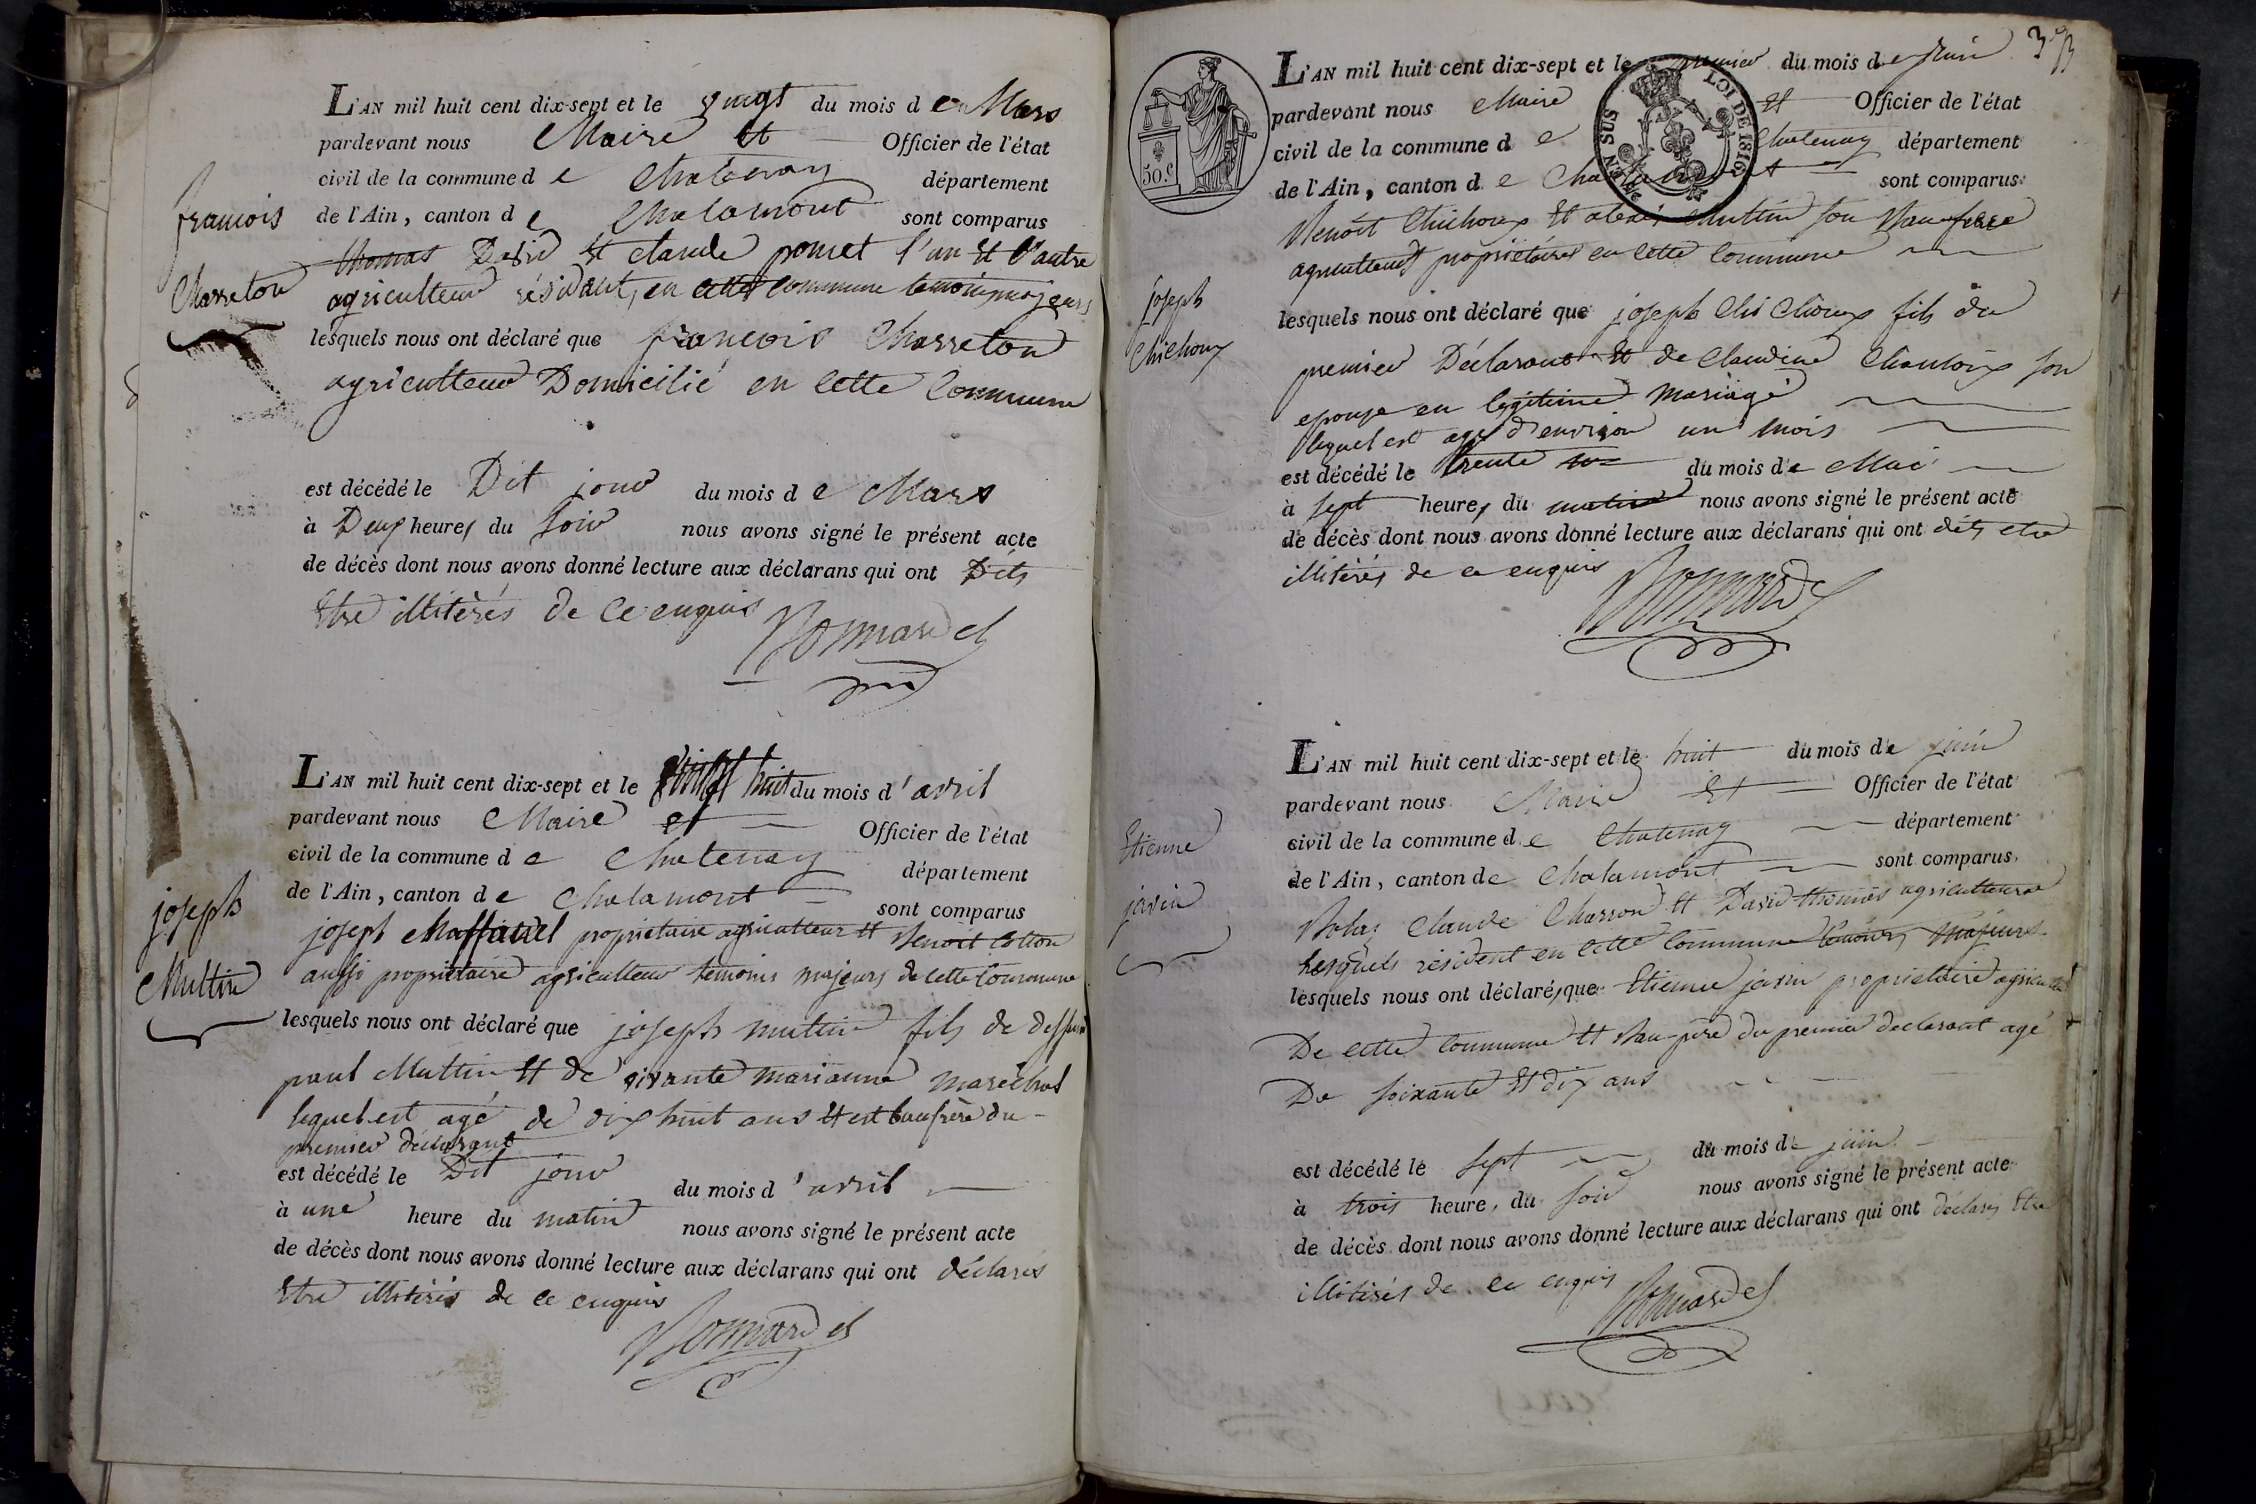 L'AN mil huit cent dix-sept et le vingt du mois de Mars
pardevant nous Maire et Officier de l'état
civil de la commune de Chatenay département
de l'Ain, canton de Chalamont sont comparus
thomas David et claude pomet l'un et l'autre
agriculteur résidant, en cette commune temoins majeurs
lesquels nous ont déclaré que françois Charreton
agriculteur Domicilié en cette Commune
françois
Charreton
est décédé le Dit jour du mois de Mars
à Deux heures du soir nous avons signé le présent acte
de décès dont nous avons donné lecture aux déclarans qui ont Dits
Etre illitérés de ce enquis
Bonnardel
L'AN mil huit cent dix-sept et le huit du mois d'avril
pardevant nous Maire et Officier de l'état
civil de la commune de Chatenay département
de l'Ain, canton de Chalamont sont comparus
joseph propriétaire agriculteur et Benoit Cotton
aussi propriétaire agriculteur temoins majeurs de cette Commune
lesquels nous ont déclaré que joseph muttin fils de deffunt
paul Muttin et de vivante marianne maréchal
lequel est agé de dix huit ans et est beaufrère du
premier déclarant
joseph
Muttin
est décédé le Dit jour du mois d'avril
à une heure du matin nous avons signé le présent acte
de décès dont nous avons donné lecture aux déclarans qui ont déclarés
Etre illitérés de ce enquis
Bonnardel
393
50.c
EN SUS
LOI DE 1816
L'AN mil huit cent dix-sept et le premier du mois de juin
pardevant nous Maire et Officier de l'état
civil de la commune de Chatenay département
de l'Ain, canton de Chalamont sont comparus
Benoit Chichoux et alexis Muttin son Beaufrere
agriculteurs propriétaires en cette Commune
lesquels nous ont déclaré que joseph Chichoux fils du
premier Déclarant et de Claudine son
epouse en legitime Mariage
lequel est agé d'environ un mois
joseph
Chichoux
est décédé le trente un du mois de Mai
à sept heures du matin nous avons signé le présent acte
de décès dont nous avons donné lecture aux déclarans qui ont dits etre
illitérés de ce enquis
Bonnardel
L'AN mil huit cent dix-sept et le huit du mois de juin
pardevant nous Maire Et Officier de l'état
civil de la commune de Chatenay département
de l'Ain, canton de Chalamont sont comparus
Claude Charron et David thomas agriculteurs
lesquels résident en cette Commune temoins Majeurs
lesquels nous ont déclarés que Etienne javin propriétaire
De cette Commune et Beau-père du premier declarant agé
De soixante et dix ans
Etienne
javin
est décédé le sept du mois de juin
à trois heures du soir nous avons signé le présent acte
de décès dont nous avons donné lecture aux déclarans qui ont déclarés Etre
illitérés de ce enquis
Bonnardel